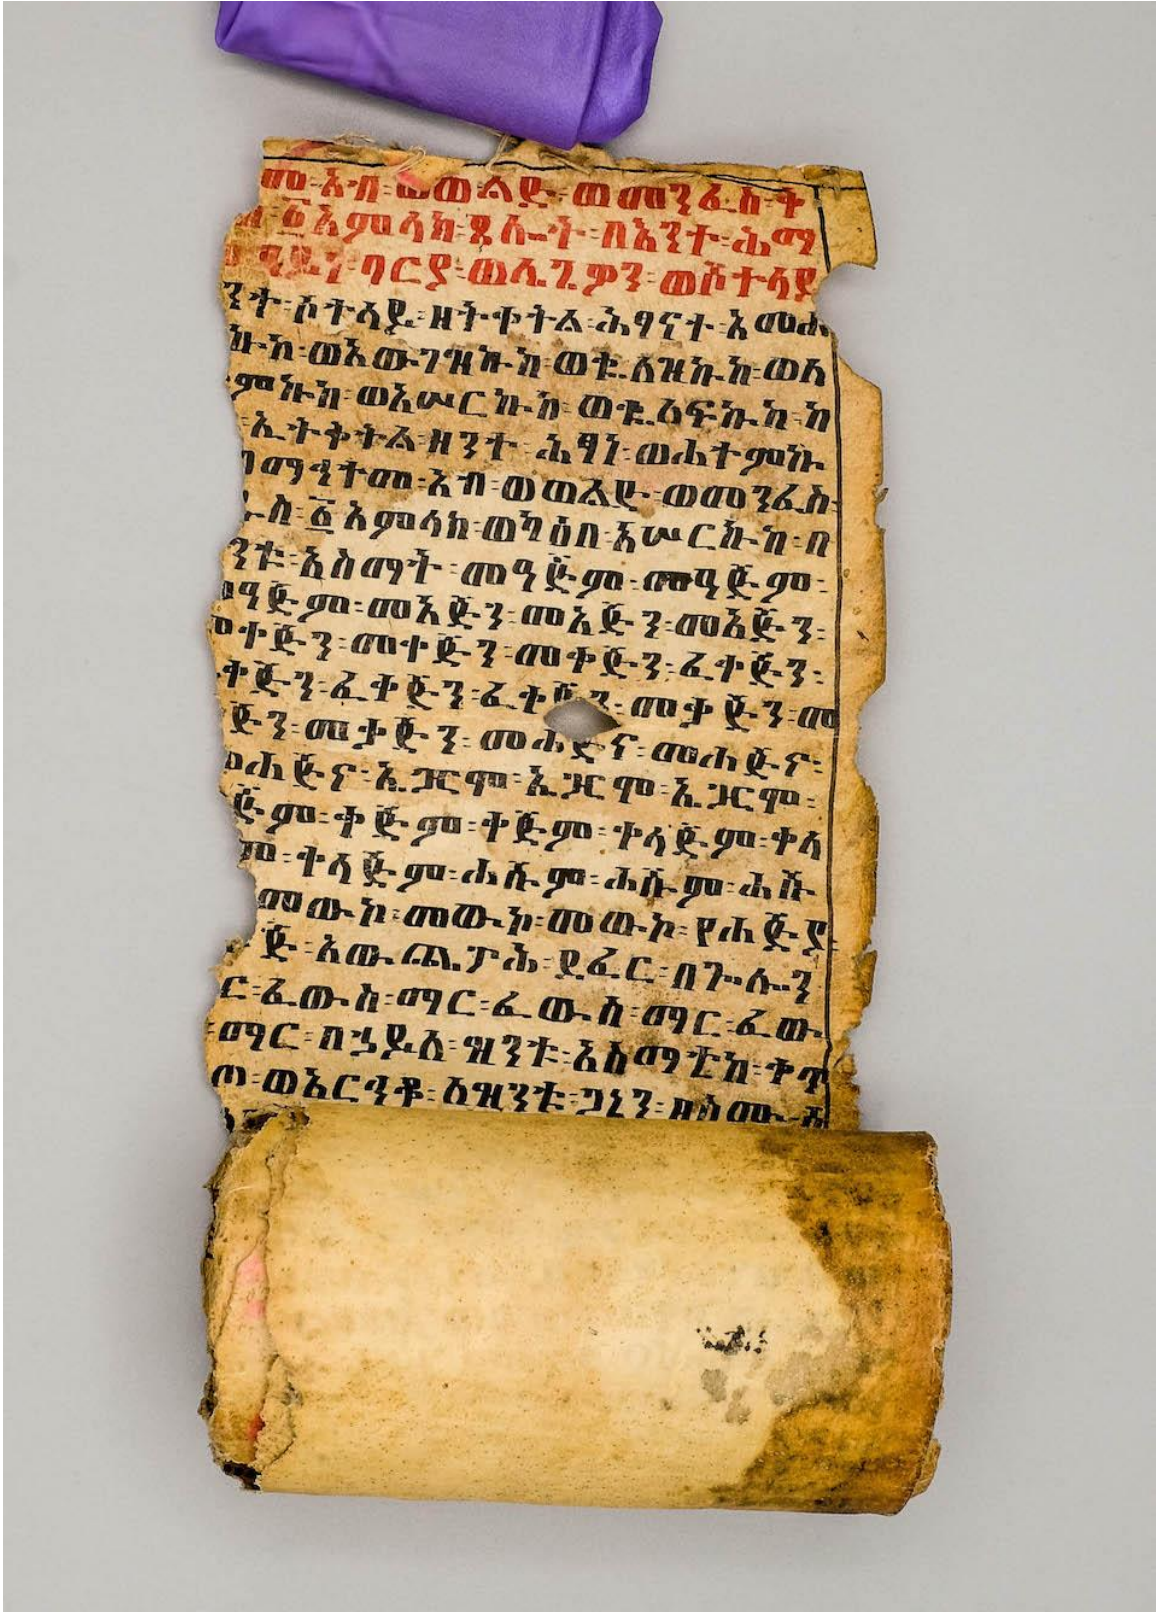 መ፡አብ፡ወወልድ፡ወመንፈስ፡ቅ
፩አምላክ፡ጸሎት፡በእንተ፡ሕማ
ባርያ፡ወሌጌዎን፡ወሾተላይ
ንተ፡ሾተላይ፡ዘትቀትል፡ሕፃናተ፡አመሐ
ኩከ፡ወአውገዝኩከ፡ወቂ.ለዝኩከ፡ወለ
ምኩከ፡ወአሠርኩከ፡ወቂ.ለፍኩከ፡ከ
ኢትቅትል፡ዘንተ፡ሕፃነ፡ወሐተምኩ
በማኅተመ፡አብ፡ወወልድ፡ወመንፈስ፡
ስ፡፩አምላክ፡ወካዕበ፡አሠርኩከ፡በ
ንቱ፡አስማት፡መዓጅም፡መዓጅም፡
ዓጅም፡መአጅን፡መአጅን፡መአጅን፡
መተጅን፡መተጅን፡መተጅን፡ፈተጅን፡
ተጅን፡ፈተጅን፡ፈተጅን፡መቃጅን፡መ
ጅን፡መቃጅን፡መሐጅና፡መሐጅና፡
መሐጅና፡ኢጋርሞ፡ኢጋርሞ፡ኢጋርሞ፡
ጅም፡ቀጅም፡ቀጅም፡ቀላጅም፡ቀላ
ም፡ቀላጅም፡ሐሹም፡ሐሹም፡ሐሹ
መውክ፡መውክ፡መውክ፡የሐጅያ
ጅ፡አውጪ.ፓሕ፡ይፈር፡በጕሉን
ር፡ፈውስ፡ማር፡ፈውስ፡ማር፡ፈው
ማር፡በኃይለ፡ዝንቱ፡አስማቲከ፡ቀጥ
ወአርኅቆ፡ለዝንቱ፡ጋኔን፡ዘስሙ